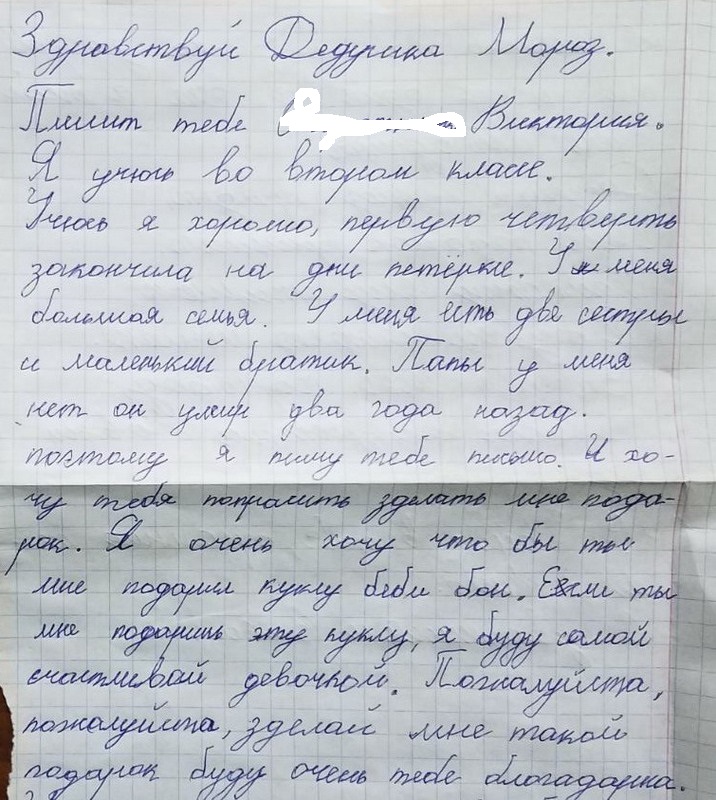 Здравствуй Дедушка Мороз.
Пишит тебе Виктория.
Я учюсь во втором класе.
Учюсь я хорошо, первую четверть
закончила на дми петёрки. У меня
большая семья. У меня есть две сестры
и маленький братик. Папы у меня
нет он умир два года назад.
поэтому я пишу тебе письмо. И хо-
чу тебя попросить зделать мне пода-
рок. Я очень хочу что бы ты
мне подарил куклу беби бон. Если ты
мне подаришь эту куклу, я буду самой
счастливай девочкой. Пожалуйста,
пожалуйста, зделай мне такой
подарок буду очень тебе благадарна.